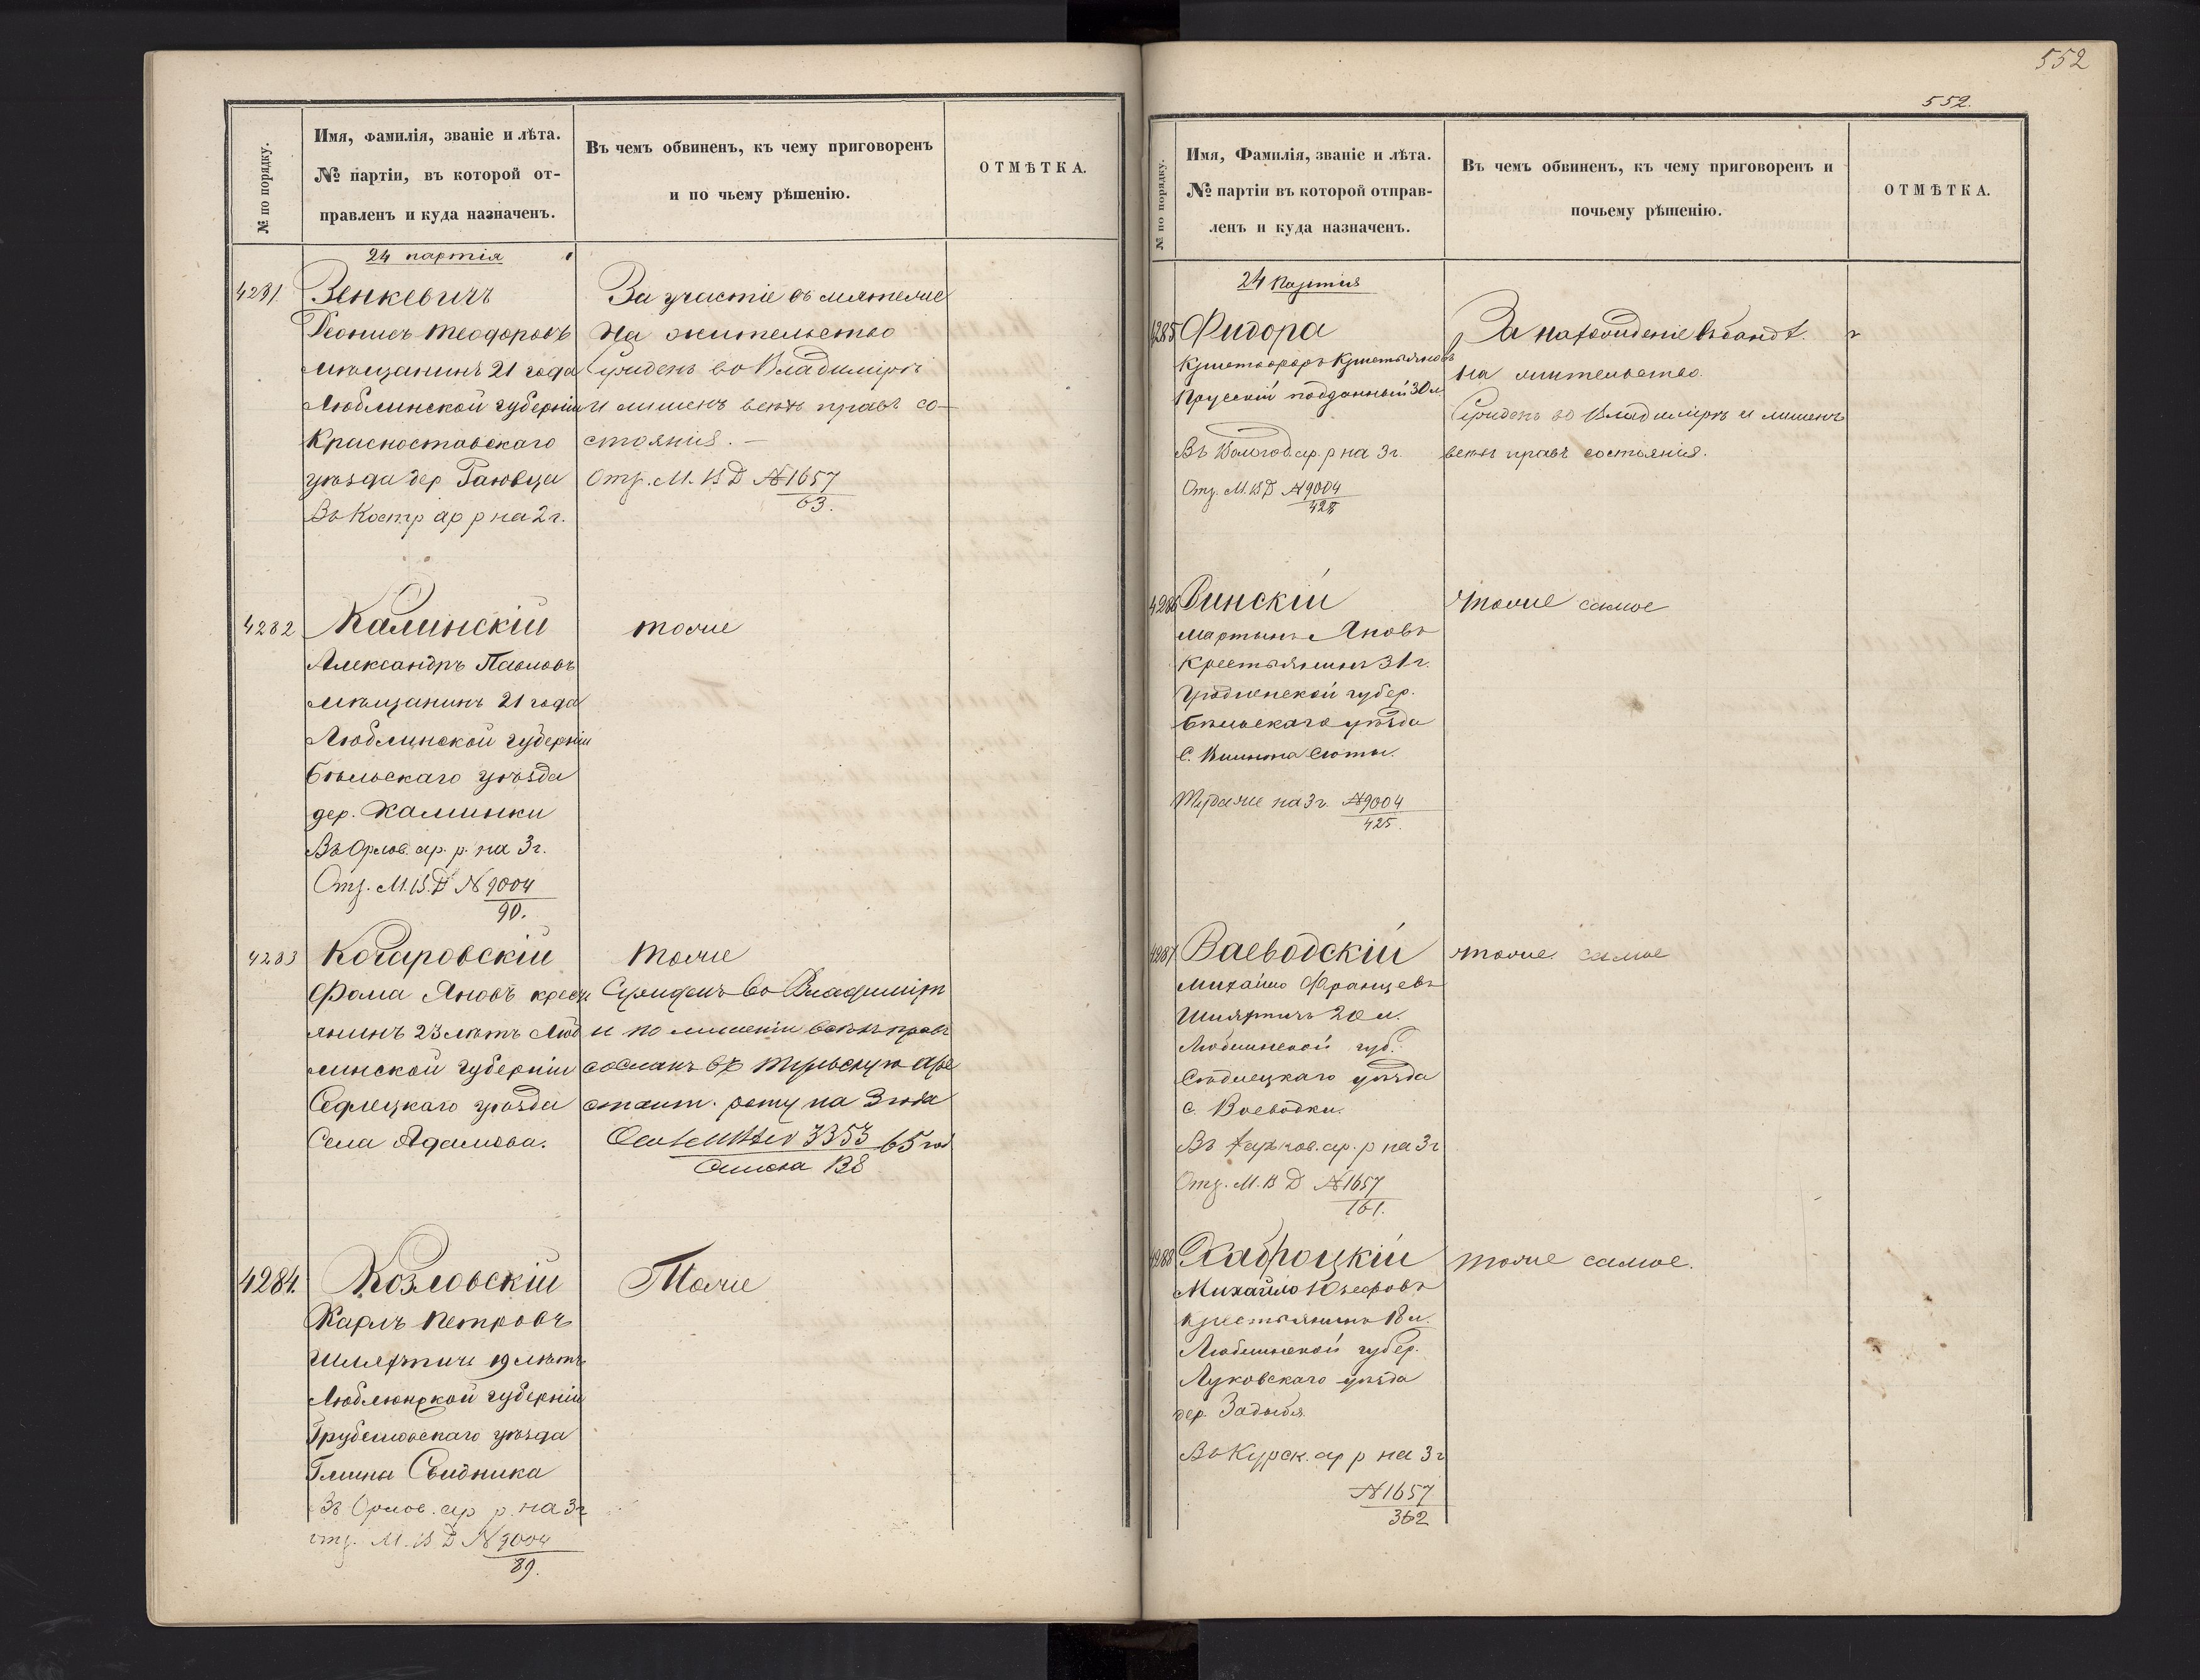 552
552.
№ по порядку.
Имя, Фамилія, званіе и лѣта.
№ партіи, въ которой от-
правленъ и куда назначенъ.
Въ чемъ обвиненъ, къ чему приговоренъ
и по чьему рѣшенію.
ОТМѢТКА.
24 партія
4281
Зенкевичъ
Леонисъ Теодоровъ
мѣщанинъ 21 года
Люблинской губерніи
Красноставскаго
уѣзда дер.
Въ Костр ар р на 2 г.
За участіе въ мятеже
На жительство
Сужденъ во Владимірѣ
и лишенъ всѣхъ правъ со-
стоянія. —
Отз. М. В Д № 1657
63.
4282
Калинскій
Александръ Павловъ
мѣщанинъ 21 года
Люблинской губерніи
Бѣльскаго уѣзда
дер. Калинки
Въ Орлов. ар. р. на 3 г.
Отз. М. В. Д № 9004
90.
тоже
4283
Кочаровскій
Фома Яновъ кресть
янинъ 23 лѣтъ Люб
линской губерніи
Седлецкаго уѣзда
Села Адамова.
тоже
Сужденъ во Владимірѣ
и по лишеніи всѣхъ правъ
сосланъ въ Тульскую аре
стант. роту на 3 года
3353 65 год
Списка 138
4284.
Козловскій
Карлъ Петровъ
Шляхтичъ 19 лѣтъ
Люблюнской губерніи
Грубешовскаго уѣзда
Гмины Свидника
Въ Орлов. ар р. на 3 г
отз. М. В Д № 9004
89.
Тоже
№ по порядку.
Имя, Фамилія, званіе и лѣта.
№ партіи въ которой отправ-
ленъ и куда назначенъ.
Въ чемъ обвиненъ, къ чему приговоренъ и
почьему рѣшенію.
ОТМѢТКА.
24 Партія
4285
Фидора
Христофоръ Христьяновъ
Прусскій подданный 30 л
Въ Вологод. ар. р на 3 г.
Отз. М. В Д № 9004
За нахожденіе въ бандѣ.
На жительство.
Сужденъ во Владимірѣ и лишенъ
всѣхъ правъ состоянія.
4286
Винскій
Мартынъ Яновъ
Крестьянинъ 31 г.
Гродненской губер.
Бѣльскаго уѣзда
С.
Туда же на 3 г. № 9004
425.
тоже самое
4287
Ваеводскій
Михайло Францевъ
Шляхтичъ 20 л.
Люблинской губ.
Сѣдлецкаго уѣзда
с. Воеводки.
Въ Харков. ар. р на 3 г
Отз. М. В Д № 1657
161.
тоже самое
4288
Хаброцкій
Михайло Юзефовъ
крестьянинъ 18 л.
Люблинской губер.
Луковскаго уѣзда
дер. Задыбя
Въ Курск. ар р на 3 г
№ 1657
362
тоже самое.